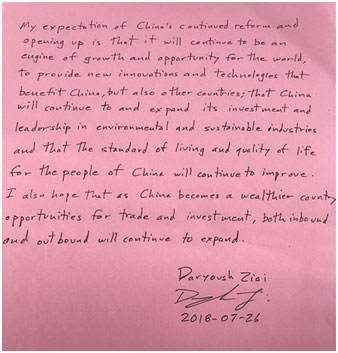 My expectation of China's continued reform and
opening up is that it will continue to be an
engine of growth and opportunity for the world,
to provide new innovations and technologies that
benefit China, but also other countries; that China
will continue to and expand its investment and
leadership in environmental and sustainable industries
and that the standard of living and quality of life
for the people of China will continue to improve.
I also hope that as China becomes a wealthier country
opportunities for trade and investment, both inbound
and outbound will continue to expand.
Daryoush Ziai
2018-07-26